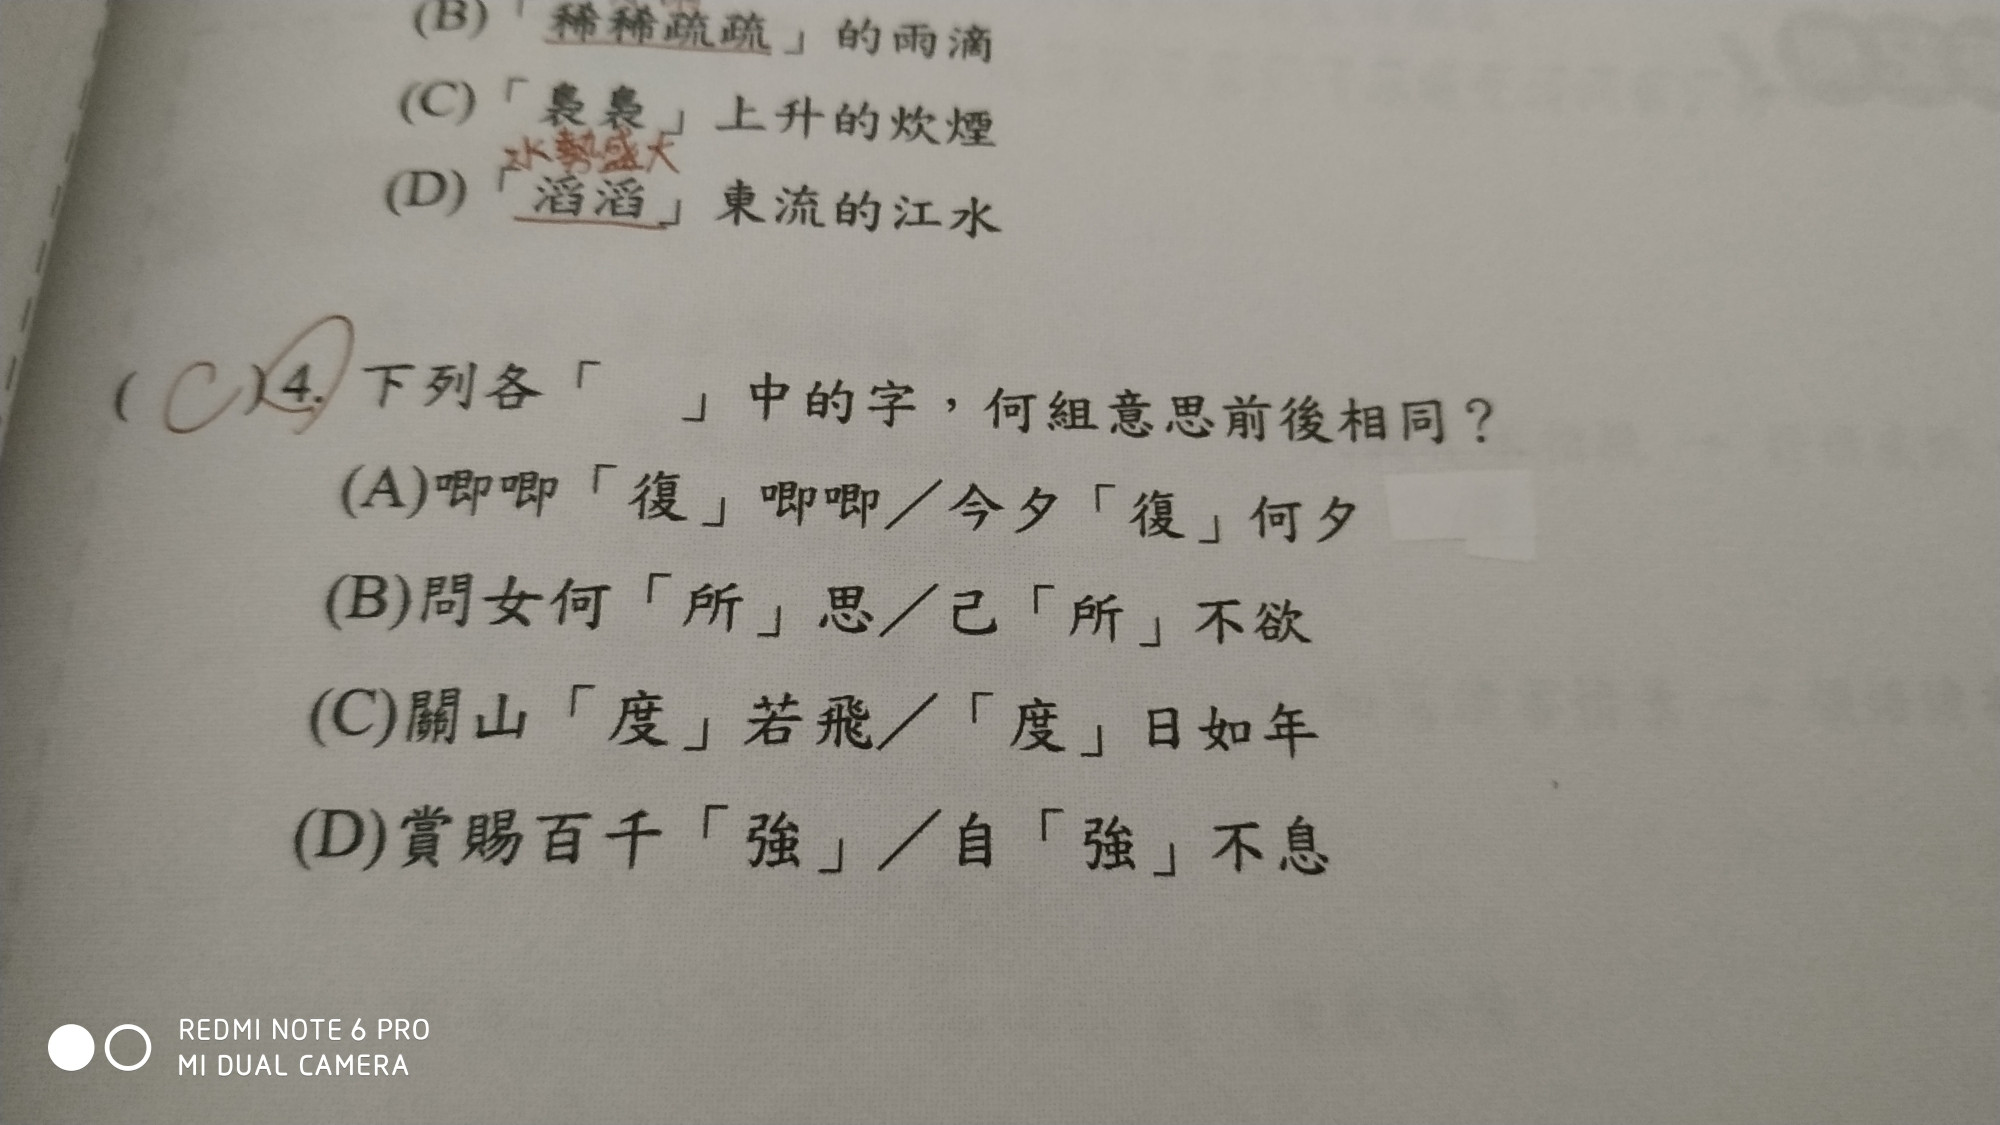 (B)「稀稀疏疏」的雨滴
(C)「裊裊」上升的炊煙
水勢盛大
(D)「滔滔」東流的江水
( C )4.下列各「　」中的字，何組意思前後相同？
(A)唧唧「復」唧唧／今夕「復」何夕
(B)問女何「所」思／己「所」不欲
(C)關山「度」若飛／「度」日如年
(D)賞賜百千「強」／自「強」不息
REDMI NOTE 6 PRO
MI DUAL CAMERA